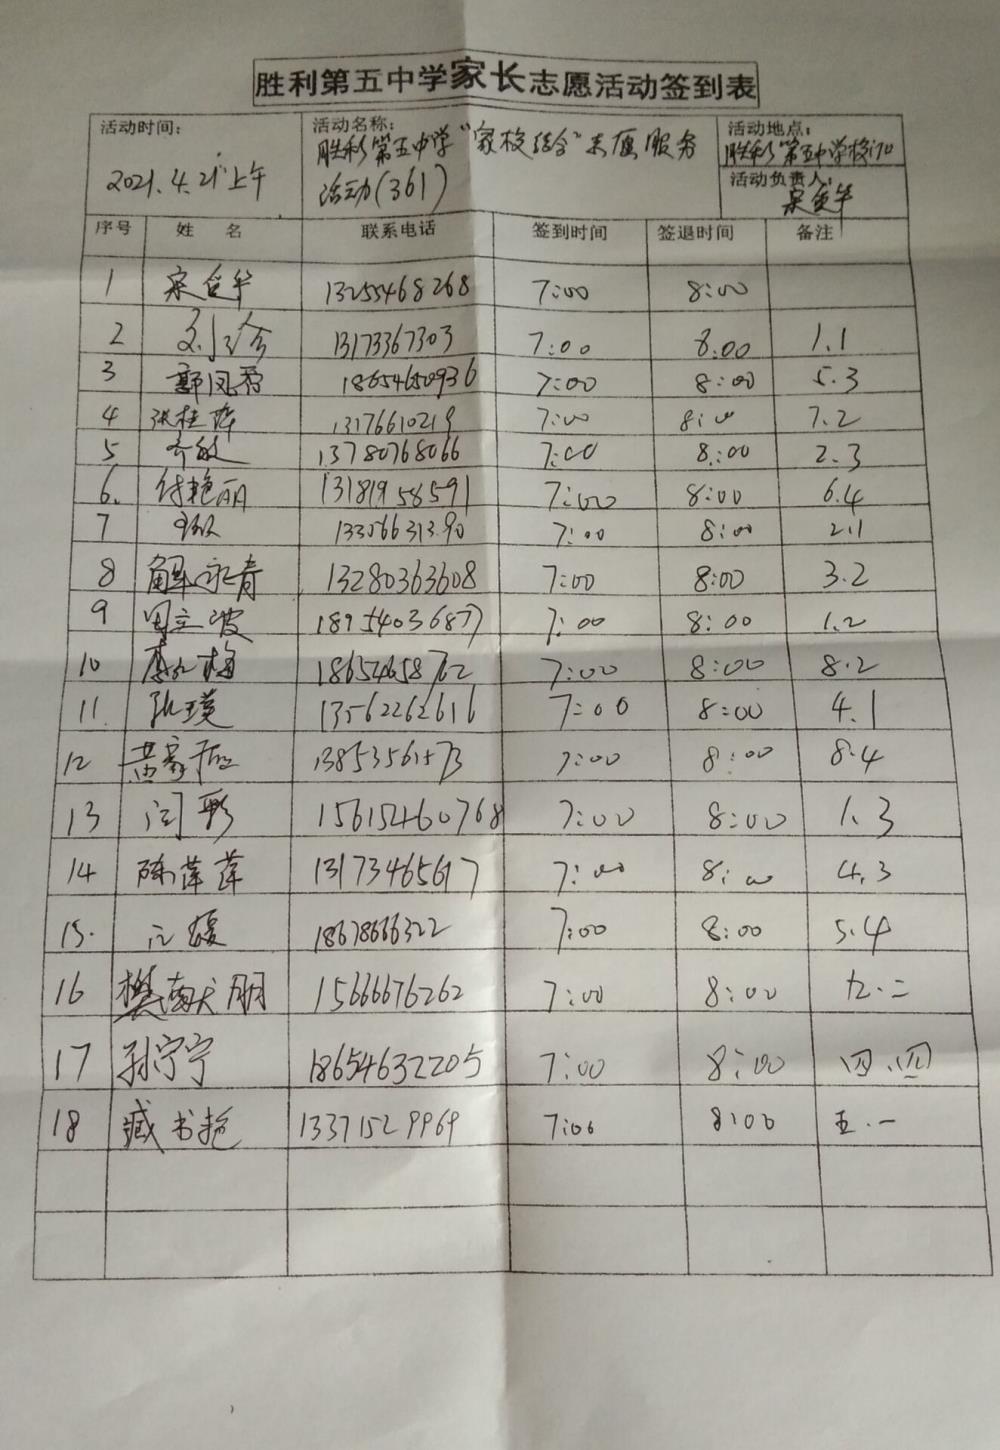 胜利第五中学家长志愿活动签到表
活动时间: 活动名称: 活动地点:
胜利第五中学"家校结合"志愿服务 胜利第五中学校门口
2021.4.21上午 活动(361) 活动负责人:
序号 姓 名 联系电话 签到时间 签退时间 备注
1 13255468268 7:00 8:00
2 13173367303 7:00 8:00 1.1
3 郭凤君 18654650936 7:00 8:00 5.3
4 张桂萍 13176610219 7:00 8:00 7.2
5 齐敏 13780768066 7:00 8:00 2.3
6. 付艳丽 13181958591 7:00 8:00 6.4
7 13306631390 7:00 8:00 2.1
8 解永青 13280363608 7:00 8:00 3.2
9 周立波 18954036877 7:00 8:00 1.2
10 18654658762 7:00 8:00 8.2
11. 张瑛 13562262616 7:00 8:00 4.1
12 13853561573 7:00 8:00 8.4
13 闫彩 156152460768 7:00 8:00 1.3
14 陈萍萍 13173465617 7:00 8:00 4.3
15. 18678666322 7:00 8:00 5.4
16 樊献朋 15666676262 7:00 8:00 九.二
17 孙宁宁 18654632205 7:00 8:00 四.四
18 臧书艳 13371529969 7:00 8:00 五.一